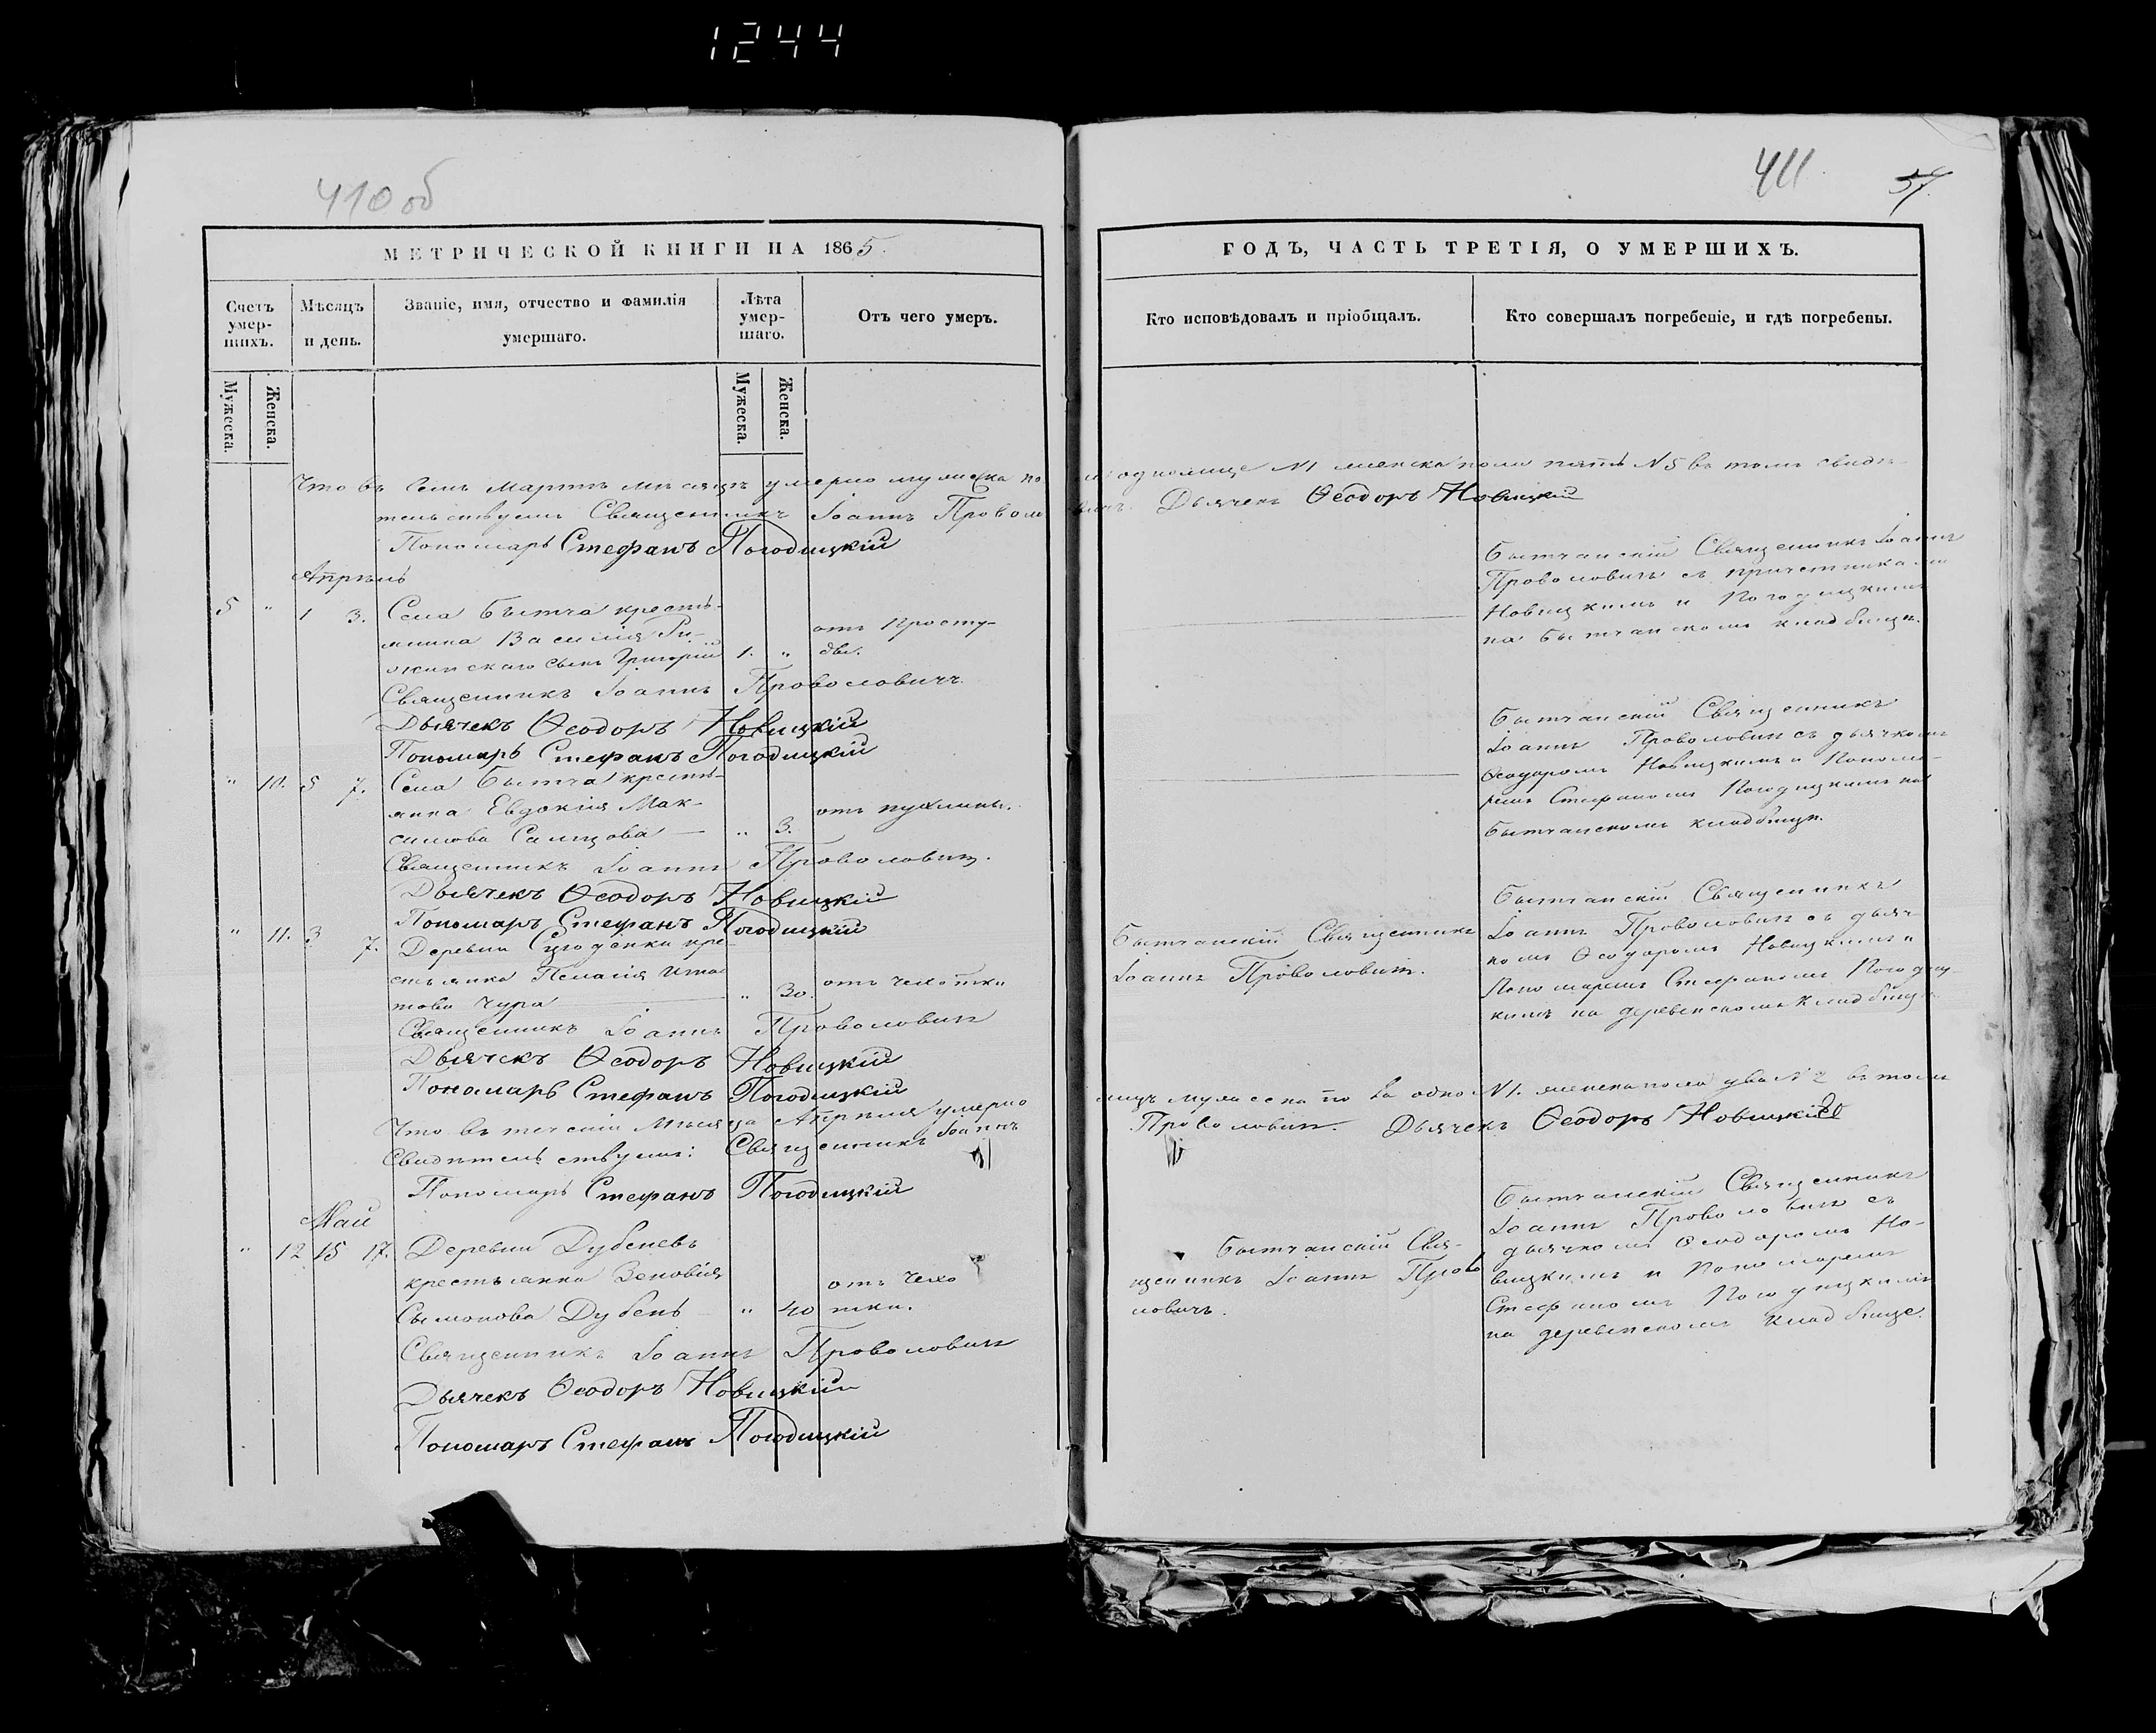 1244
410 об
МЕТРИЧЕСКОЙ КНИГИ НА 1865.
Счетъ умер-шихъ.
Мужеска.
Женска.
Мѣсяцъ и день.
Званіе, имя, отчество и фамилія умершаго.
Лѣта умер-шаго.
Мужеска.
Женска.
Отъ чего умеръ.
Что въ семъ Мартѣ мѣсяцѣ умерло мужеска по
тельствуемъ Священникъ Іоаннъ Провол
Пономарь Стефанъ Погодицкій
Апрѣль
5 " 1 3. Села Бытча кресть-
янина Василія
сынъ Григорій 1. " отъ просту-
ды.
Священникъ Іоаннъ Проволовичъ.
Дьячекъ Ѳеодоръ Новицкій
Пономарь Стефанъ Погодицкій
" 10. 5 7. Села Бытча кресть-
янка Евдокія Мак-
симова " 3. отъ пухлины.
Священникъ Іоаннъ Проволовичъ.
Дьячекъ Ѳеодоръ Новицкій
Пономаръ Стефанъ Погодицкій
" 11. 3 7. Деревни кре-
стьянка Пелагія
това Чура " 30. отъ чехотки
Священникъ Іоаннъ Проволовичъ
Дьячекъ Ѳеодоръ Новицкій
Пономарь Стефанъ Погодицкій
Что въ теченіи Мѣсяца Апрѣля умерло
Свидѣтельствуемъ: Священникъ Іоаннъ
Пономарь Стефанъ Погодицкій
Май
" 12 15 17. Деревни Дубеневъ
крестьянка Зеновія
Сымонова Дубень " 40 отъ чехо
тки.
Священникъ Іоаннъ Проволовичъ
Дьячекъ Ѳеодоръ Новицкій
Пономаръ Стефанъ Погодицкій
411
57.
ГОДЪ, ЧАСТЬ ТРЕТІЯ, О УМЕРШИХЪ.
Кто исповѣдовалъ и пріобщалъ.
Кто совершалъ погребеніе, и гдѣ погребены.
N1 женска пола пять N5 въ томъ свидѣ-
Дьячекъ Ѳеодоръ Новицкій
Бытчанскій Священникъ Іоаннъ
Проволовичъ съ причетниками
Новицкимъ и Погодицкимъ
на Бытчанскомъ кладбищѣ.
Бытчанскій Священникъ
Іоаннъ Проволовичъ съ дьячкомъ
Ѳеодоромъ Новицкимъ и Понома-
ремъ Стефаномъ Погодицкимъ на
Бытчанскомъ кладбищѣ.
Бытчанскій Священникъ
Іоаннъ Проволовичъ.
Бытчанскій Священникъ
Іоаннъ Проволовичъ съ дьяч-
комъ Ѳеодоромъ Новицкимъ и
Пономаремъ Стефаномъ Погодиц-
кимъ на деревенскомъ кладбищѣ
мужеска по ла одно N1. женска пола два N2 въ томъ
Проволовичъ. Дьячекъ Ѳеодоръ Новицкій
Бытчанскій Свя-
щенникъ Іоаннъ Прово
ловичъ.
Бытчанскій Священникъ
Іоаннъ Проволовичъ съ
дьячкомъ Ѳеодоромъ Но-
вицкимъ и Пономаремъ
Стефаномъ Погодицкимъ
на деревенскомъ кладбище.